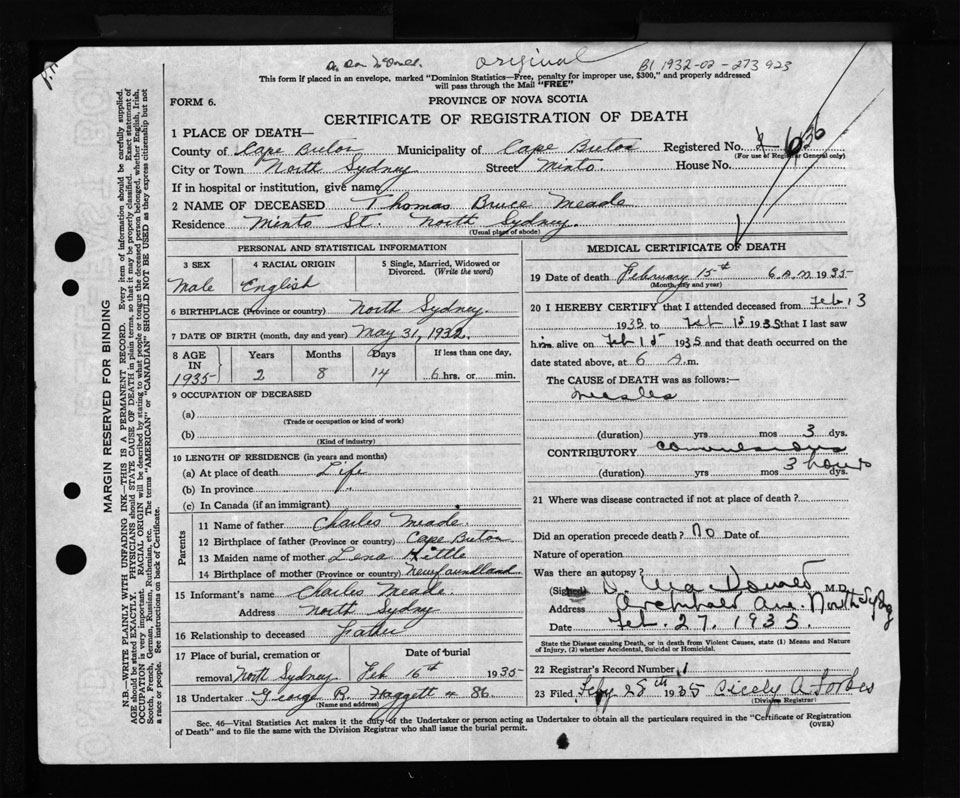 original
B1 1932-02-273923
This form if placed in an envelope, marked "Dominion Statistics—Free, penalty for improper use, $300," and properly addressed
will pass through the Mail "FREE"
FORM 6.
PROVINCE OF NOVA SCOTIA
CERTIFICATE OF REGISTRATION OF DEATH
MARGIN RESERVED FOR BINDING
N.B.—WRITE PLAINLY WITH UNFADING INK—THIS IS A PERMANENT RECORD. Every item of information should be carefully supplied.
AGE should be stated EXACTLY. PHYSICIANS should STATE CAUSE OF DEATH in plain terms, so that it may be properly classified. Exact statement of
OCCUPATION is very important. RACIAL ORIGIN will be described by stating to what people or tongue the deceased person belonged, whether English, Irish,
Scotch, French, German, Russian, Ruthenian, etc. The terms "AMERICAN" or "CANADIAN" SHOULD NOT BE USED as they express citizenship but not
a race or people. See instructions on back of Certificate.
1 PLACE OF DEATH—
County of Cape Breton Municipality of Cape Breton Registered No. 636
(For use of Registrar General only)
City or Town North Sydney Street Minto. House No.
If in hospital or institution, give name
2 NAME OF DECEASED Thomas Bruce Meade
Residence Minto St. North Sydney.
(Usual place of abode)
PERSONAL AND STATISTICAL INFORMATION
3 SEX 4 RACIAL ORIGIN 5 Single, Married, Widowed or
Divorced. (Write the word)
Male English
6 BIRTHPLACE (Province or country) North Sydney.
7 DATE OF BIRTH (month, day and year) May 31, 1932.
8 AGE Years Months Days If less than one day,
IN
1935 2 8 14 6 hrs. or min.
9 OCCUPATION OF DECEASED
(a)
(Trade or occupation or kind of work)
(b)
(Kind of industry)
10 LENGTH OF RESIDENCE (in years and months)
(a) At place of death Life
(b) In province
(c) In Canada (if an immigrant)
Parents
11 Name of father Charles Meade.
12 Birthplace of father (Province or country) Cape Breton
13 Maiden name of mother Lena Kittle
14 Birthplace of mother (Province or country) Newfoundland
15 Informant's name Charles Meade.
Address North Sydney
16 Relationship to deceased Father
17 Place of burial, cremation or Date of burial
removal North Sydney Feb 16th 1935
18 Undertaker George R. Haggett
(Name and address)
MEDICAL CERTIFICATE OF DEATH
19 Date of death February 15th 6 a.m. 1935
(Month, day and year)
20 I HEREBY CERTIFY that I attended deceased from Feb 13
1935 to Feb 15 1935 that I last saw
him alive on Feb 15 1935 and that death occurred on the
date stated above, at 6 A.m.
The CAUSE of DEATH was as follows:—
measles
(duration) yrs mos 3 dys.
CONTRIBUTORY convulsions
(duration) yrs mos 3 hours dys.
21 Where was disease contracted if not at place of death?
Did an operation precede death? No Date of
Nature of operation
Was there an autopsy?
(Signed) M.D.
Address Archibald Ave. North Sydney
Date Feb. 27. 1935.
State the Disease causing Death, or in death from Violent Causes, state (1) Means and Nature
of Injury, (2) whether Accidental, Suicidal or Homicidal.
22 Registrar's Record Number 1
23 Filed Feby 28th 1935 Cicely A Forbes
(Division Registrar)
Sec. 46—Vital Statistics Act makes it the duty of the Undertaker or person acting as Undertaker to obtain all the particulars required in the "Certificate of Registration
of Death" and to file the same with the Division Registrar who shall issue the burial permit. (OVER)